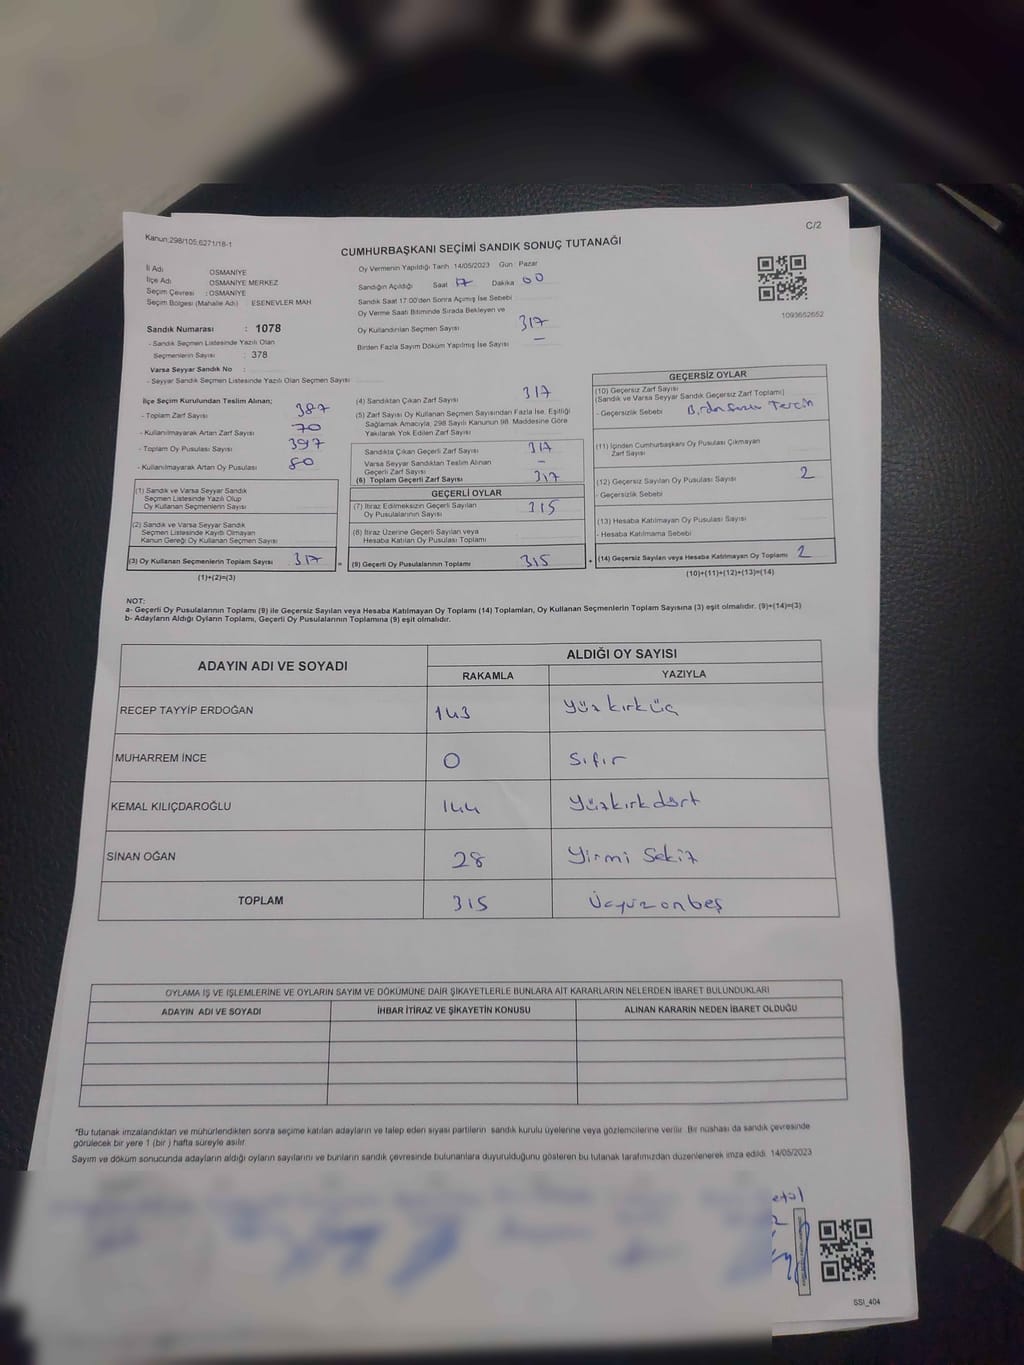 Kanun:298/105,6271/18-1
C/2
CUMHURBAŞKANI SEÇİMİ SANDIK SONUÇ TUTANAĞI
İl Adı OSMANİYE
İlçe Adı : OSMANİYE MERKEZ
Seçim Çevresi : OSMANİYE
Seçim Bölgesi (Mahalle Adı) : ESENEVLER MAH
Sandık Numarası : 1078
- Sandık Seçmen Listesinde Yazılı Olan
Seçmenlerin Sayısı : 378
Varsa Seyyar Sandık No :
- Seyyar Sandık Seçmen Listesinde Yazılı Olan Seçmen Sayısı
Oy Vermenin Yapıldığı Tarih : 14/05/2023 Gün : Pazar
Sandığın Açıldığı Saat 17 Dakika 00
Sandık Saat 17:00'den Sonra Açılmış İse Sebebi
Oy Verme Saati Bitiminde Sırada Bekleyen ve
Oy Kullandırılan Seçmen Sayısı 317
Birden Fazla Sayım Döküm Yapılmış İse Sayısı –
1093652652
İlçe Seçim Kurulundan Teslim Alınan;
- Toplam Zarf Sayısı 387
- Kullanılmayarak Artan Zarf Sayısı 70
- Toplam Oy Pusulası Sayısı 397
- Kullanılmayarak Artan Oy Pusulası 80
(1) Sandık ve Varsa Seyyar Sandık
Seçmen Listesinde Yazılı Olup
Oy Kullanan Seçmenlerin Sayısı
(2) Sandık ve Varsa Seyyar Sandık
Seçmen Listesinde Kayıtlı Olmayan
Kanun Gereği Oy Kullanan Seçmen Sayısı
(3) Oy Kullanan Seçmenlerin Toplam Sayısı 317 =
(1)+(2)=(3)
(4) Sandıktan Çıkan Zarf Sayısı 317
(5) Zarf Sayısı Oy Kullanan Seçmen Sayısından Fazla İse, Eşitliği
Sağlamak Amacıyla, 298 Sayılı Kanunun 98. Maddesine Göre
Yakılarak Yok Edilen Zarf Sayısı
Sandıkta Çıkan Geçerli Zarf Sayısı 317
Varsa Seyyar Sandıktan Teslim Alınan
Geçerli Zarf Sayısı –
(6) Toplam Geçerli Zarf Sayısı 317
GEÇERLİ OYLAR
(7) İtiraz Edilmeksizin Geçerli Sayılan
Oy Pusulalarının Sayısı 315
(8) İtiraz Üzerine Geçerli Sayılan veya
Hesaba Katılan Oy Pusulası Toplamı
(9) Geçerli Oy Pusulalarının Toplamı 315 +
GEÇERSİZ OYLAR
(10) Geçersiz Zarf Sayısı
(Sandık ve Varsa Seyyar Sandık Geçersiz Zarf Toplamı)
- Geçersizlik Sebebi Tercih
(11) İçinden Cumhurbaşkanı Oy Pusulası Çıkmayan
Zarf Sayısı
(12) Geçersiz Sayılan Oy Pusulası Sayısı 2
- Geçersizlik Sebebi
(13) Hesaba Katılmayan Oy Pusulası Sayısı
- Hesaba Katılmama Sebebi
(14) Geçersiz Sayılan veya Hesaba Katılmayan Oy Toplamı 2
(10)+(11)+(12)+(13)=(14)
NOT:
a- Geçerli Oy Pusulalarının Toplamı (9) ile Geçersiz Sayılan veya Hesaba Katılmayan Oy Toplamı (14) Toplamları, Oy Kullanan Seçmenlerin Toplam Sayısına (3) eşit olmalıdır. (9)+(14)=(3)
b- Adayların Aldığı Oyların Toplamı, Geçerli Oy Pusulalarının Toplamına (9) eşit olmalıdır.
ADAYIN ADI VE SOYADI
ALDIĞI OY SAYISI
RAKAMLA YAZIYLA
RECEP TAYYİP ERDOĞAN 143 Yüzkırküç
MUHARREM İNCE 0 Sıfır
KEMAL KILIÇDAROĞLU 144 Yüzkırkdört
SİNAN OĞAN 28 Yirmi Sekiz
TOPLAM 315 Üçyüzonbeş
OYLAMA İŞ VE İŞLEMLERİNE VE OYLARIN SAYIM VE DÖKÜMÜNE DAİR ŞİKAYETLERLE BUNLARA AİT KARARLARIN NELERDEN İBARET BULUNDUKLARI
ADAYIN ADI VE SOYADI İHBAR İTİRAZ VE ŞİKAYETİN KONUSU ALINAN KARARIN NEDEN İBARET OLDUĞU
*Bu tutanak imzalandıktan ve mühürlendikten sonra seçime katılan adayların ve talep eden siyasi partilerin sandık kurulu üyelerine veya gözlemcilerine verilir. Bir nüshası da sandık çevresinde
görülecek bir yere 1 (bir ) hafta süreyle asılır.
Sayım ve döküm sonucunda adayların aldığı oyların sayılarını ve bunların sandık çevresinde bulunanlara duyurulduğunu gösteren bu tutanak tarafımızdan düzenlenerek imza edildi. 14/05/2023
SSI_404